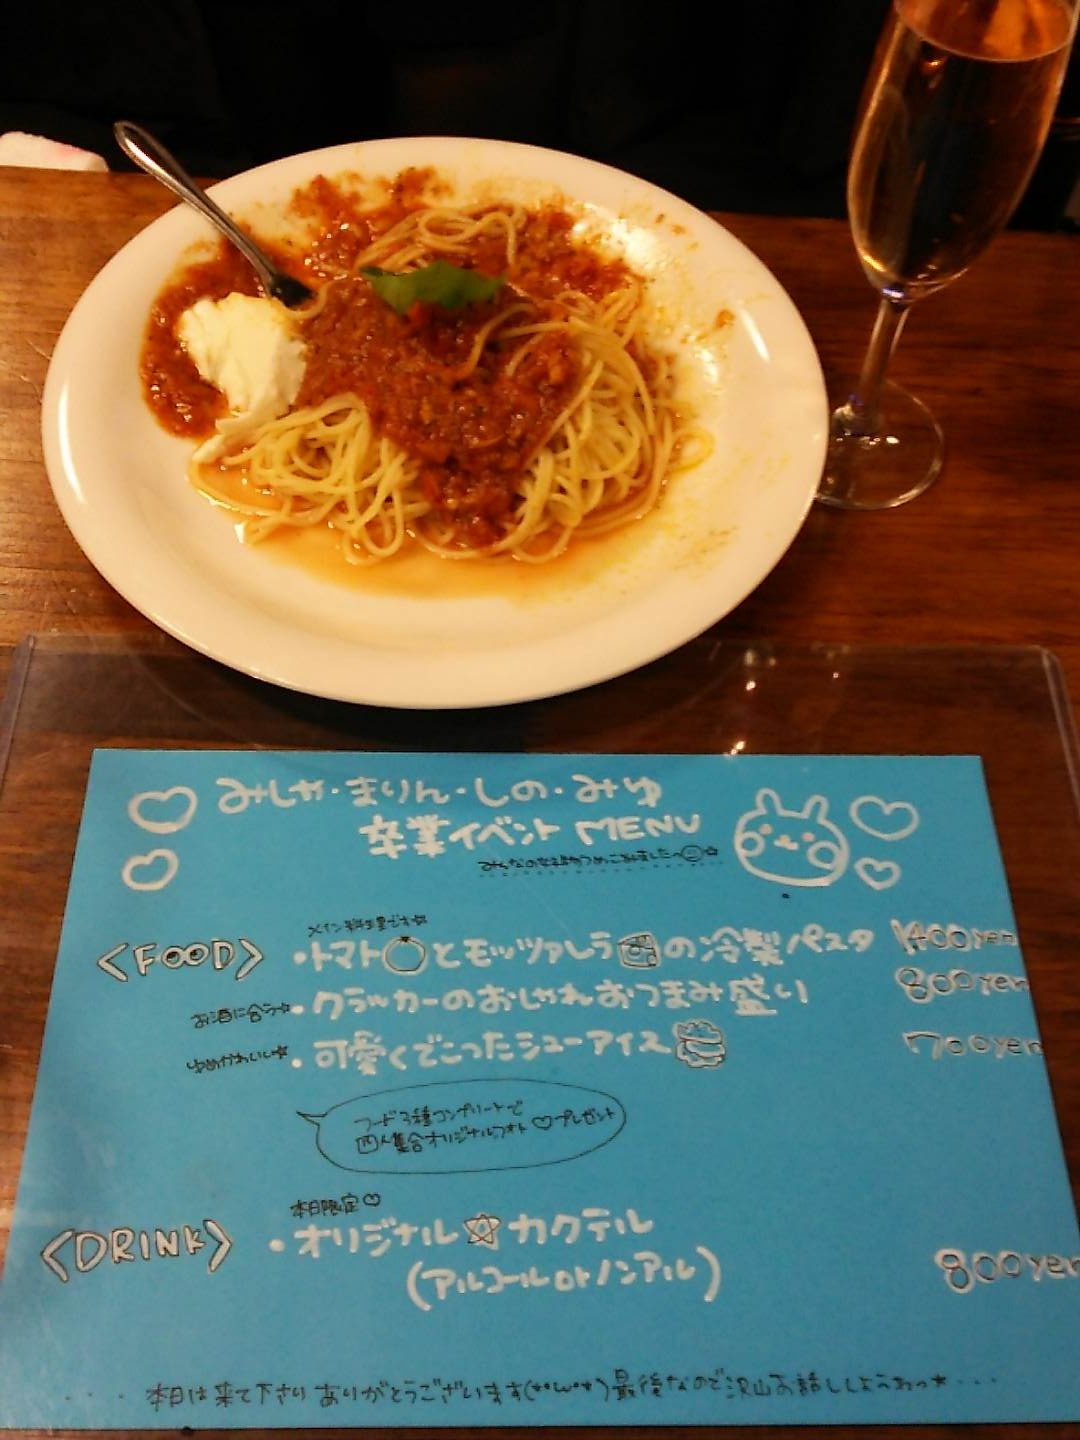 みしゃ・まりん・しの・みゆ
卒業イベント MENU
みんなの女子力つめこみましたっ☆
<FOOD>
メイン料理です☆
・トマトとモッツァレラの冷製パスタ 1400yen
お酒に合う☆・クラッカーのおしゃれおつまみ盛り 800yen
ゆめかわいい☆・可愛くでこったシューアイス 700yen
フード3種コンプリートで
四人集合オリジナルフォト♡プレゼント
<DRINK>
本日限定♡
・オリジナル☆カクテル
(アルコール or ノンアル) 800yen
・・・本日は来て下さりありがとうございます(*°ω°*)最後なので沢山お話ししようねっ★・・・